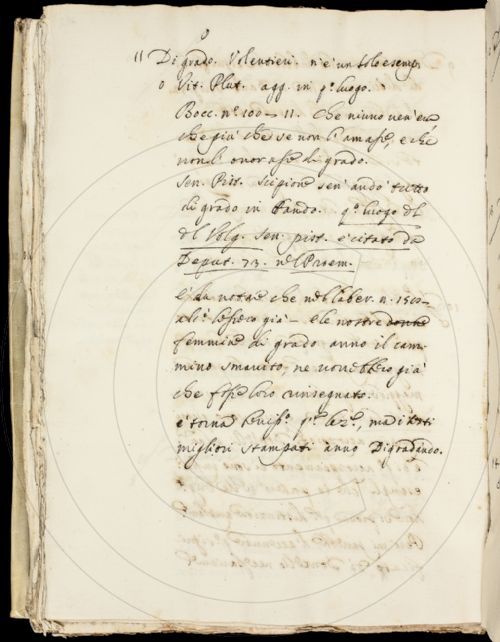 11 Di grado. Volentieri. n'è un solo esemp
o Vit. Plut. agg. in qº luogo.
Bocc. nº 100 - 11. Che niuno ven'era
che già che se non l'amasse, e che
non l'onorasse di grado.
Sen. Pist. Scipione sen'andò tutto
di grado in bando. qº luogo
Volg. Sen. pist. è citato da
Deput. 73. nel Proem.
È da notare che n. 1510
già - e le nostre donne
femmine di grado anno il cam-
mino smarrito, ne vorrebbero già
che fosse loro rinsegnato.
e torna ma i testi
migliori stampati anno Digradando.